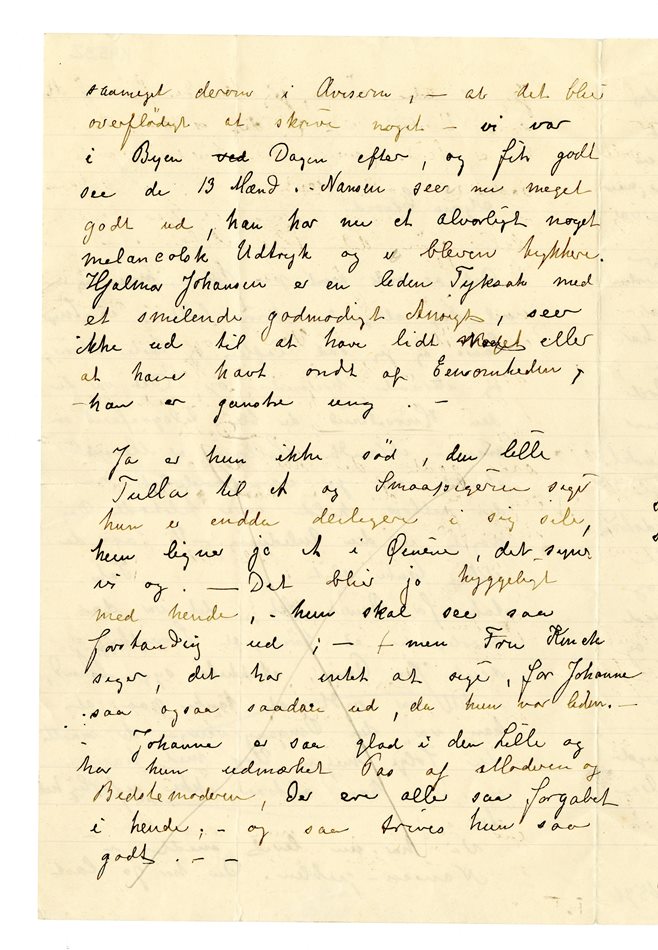 saameget derom i Aviserne, – at det blir
overflödigt at skrive noget – vi var
i Byen ved Dagen efter, og fik godt
see de 13 Mænd. – Nansen seer nu meget
godt ud, han har nu et alvorligt noget
melancolsk Udtryk og er bleven tykkere.
Hjalmar Johansen er en liden Tyksak med
et smilende godmodigt Ansigt, seer
ikke ud til at have lidt meget eller
at have havt ondt af Eensomheden,
– han er ganske ung. –
Ja er hun ikke söd, den lille
Tulla til A og Smaapigerne siger
hun er endda deiligere i sig selv,
hun ligner jo A i Öinene, det synes
vi og. – Det blir jo hyggeligt
med hende, – hun skal see saa
forstandig ud; – – men Fru Kinck
siger, det har intet at sige, for Johanne
saa ogsaa saadan ud, da hun var liden. –
– Johanne er saa glad i den Lille og
har hun udmærket Pas af Moderen og
Bedstemoderen, Der ere alle saa forgabet
i hende, – og saa trives hun saa
godt. – –